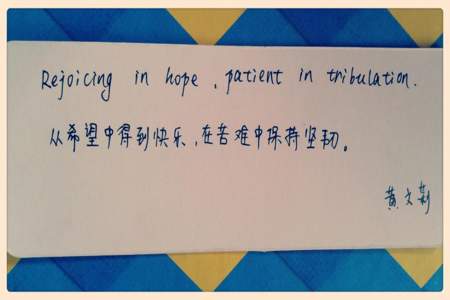 Rejoicing in hope, patient in tribulation.
从希望中得到快乐,在苦难中保持坚韧。
黄文莉